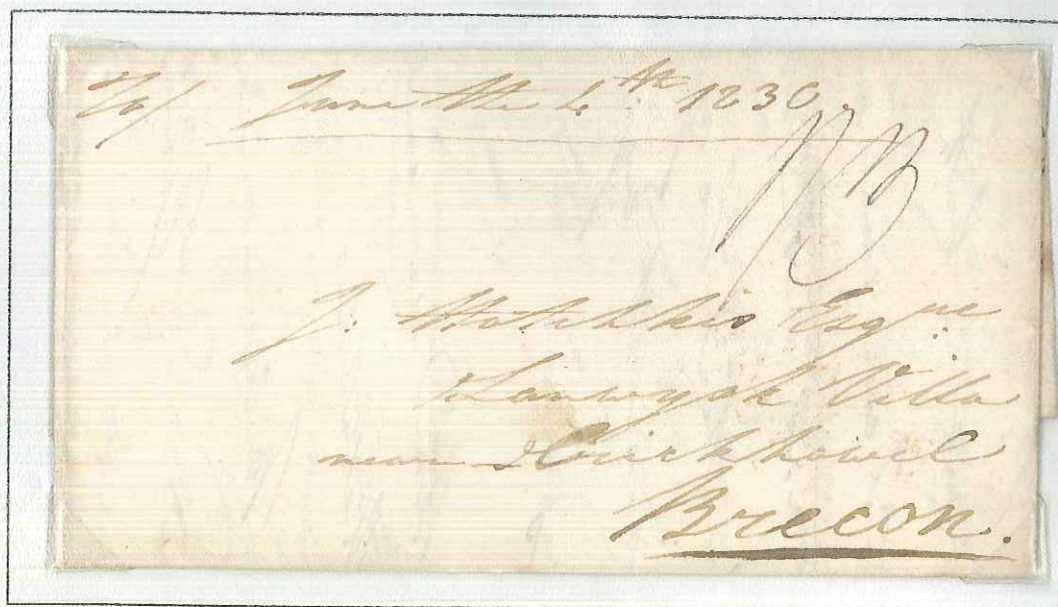 June the 4th 1830.
J. Hotchkis Esqre
Lanwysk Villa
near Crickhowel
Brecon.